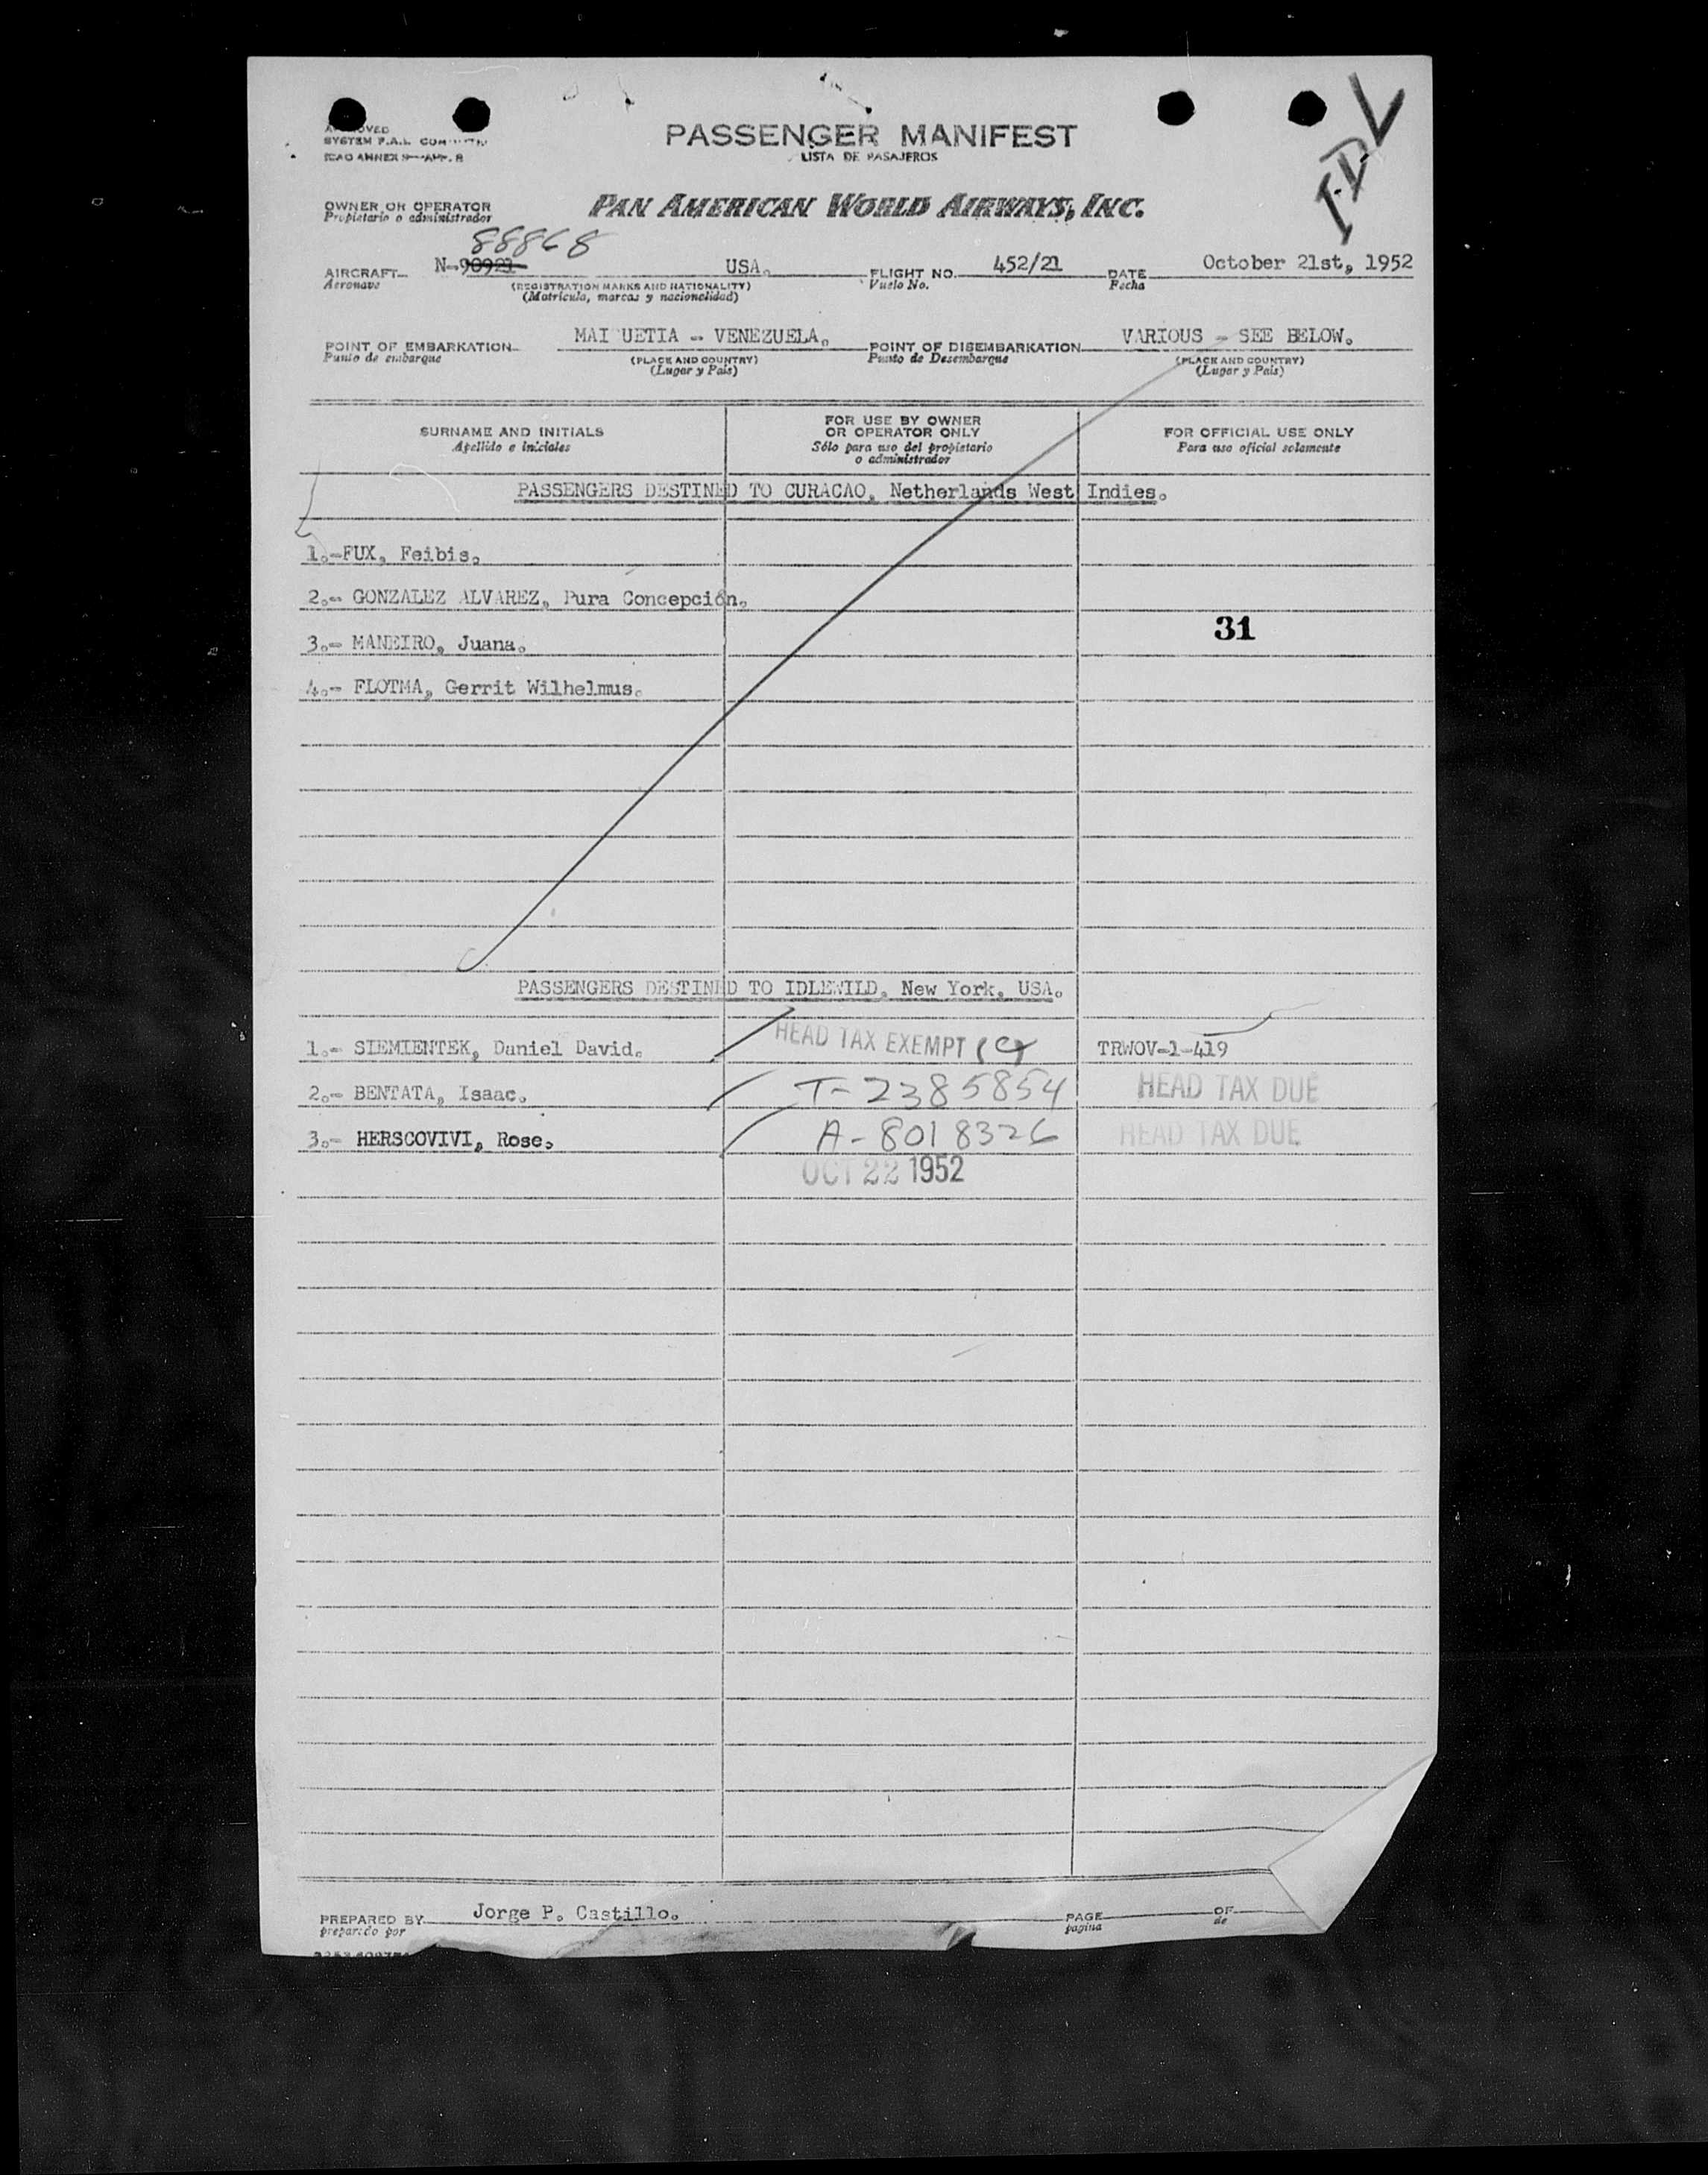 APPROVED
SYSTEM F.A.L. COMMITTEE
ICAO ANNEX 9—APP. B
PASSENGER MANIFEST
LISTA DE PASAJEROS
I.D.L
OWNER OR OPERATOR
Propietario o administrador
PAN AMERICAN WORLD AIRWAYS, INC.
88868
AIRCRAFT N-90921 USA. FLIGHT NO. 452/21 DATE October 21st, 1952
Aeronave (REGISTRATION MARKS AND NATIONALITY) Vuelo No. Fecha
(Matricula, marcas y nacionalidad)
POINT OF EMBARKATION MAI UETIA - VENEZUELA. POINT OF DISEMBARKATION VARIOUS - SEE BELOW.
Punto de embarque (PLACE AND COUNTRY) Punto de Desembarque (PLACE AND COUNTRY)
(Lugar y País) (Lugar y País)
SURNAME AND INITIALS FOR USE BY OWNER OR OPERATOR ONLY FOR OFFICIAL USE ONLY
Apellido e iniciales Sólo para uso del propietario o administrador Para uso oficial solamente
PASSENGERS DESTINED TO CURACAO, Netherlands West Indies.
1.-FUX, Feibis.
2.- GONZALEZ ALVAREZ, Pura Concepción.
31
3.- MANEIRO, Juana.
4.- FLOTMA, Gerrit Wilhelmus.
PASSENGERS DESTINED TO IDLEWILD, New York, USA.
1.- SIEMIENTEK, Daniel David. HEAD TAX EXEMPT TRWOV-1-419
2.- BENTATA, Isaac. T-2385854 HEAD TAX DUE
3.- HERSCOVIVI, Rose. A-8018326 HEAD TAX DUE
OCT 22 1952
PREPARED BY Jorge P. Castillo. PAGE OF
preparado por pagina de